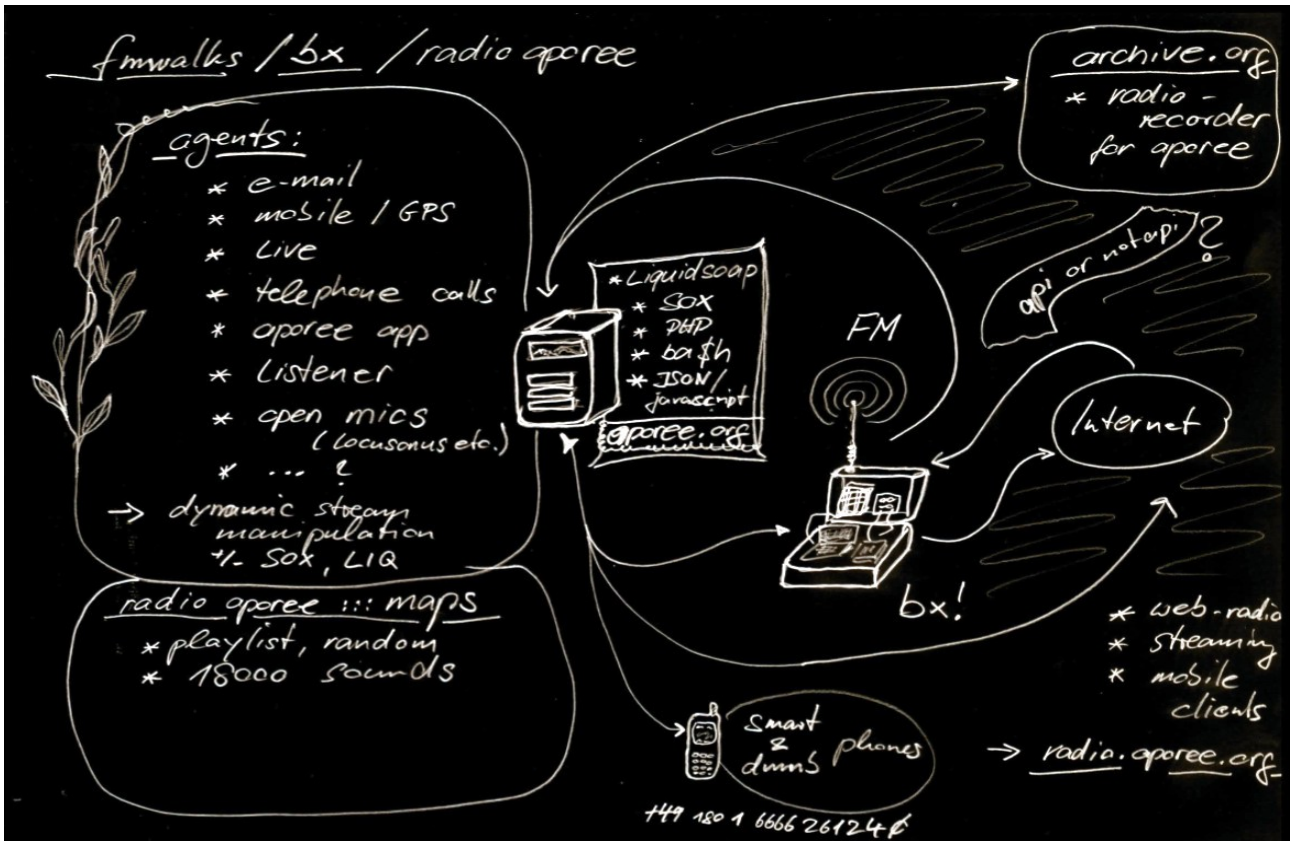 fmwalks / bx / radio aporee
agents:
* e-mail
* mobile / GPS
* Live
* telephone calls
* aporee app
* Listener
* open mics
(Locusonus etc.)
* ... ?
→ dynamic stream
manipulation
+/- SOX, LIQ
radio aporee ::: maps
* playlist, random
* 18000 sounds
* Liquidsoap
* SOX
* PHP
* ba$h
* JSON/
javascript
aporee.org
FM
bx!
archive.org
* radio-
recorder
for aporee
api or not api ?
Internet
* web-radio
* streaming
* mobile
clients
→ radio.aporee.org
smart
&
dumb
phones
+49 180 1 6666 26124 ¢